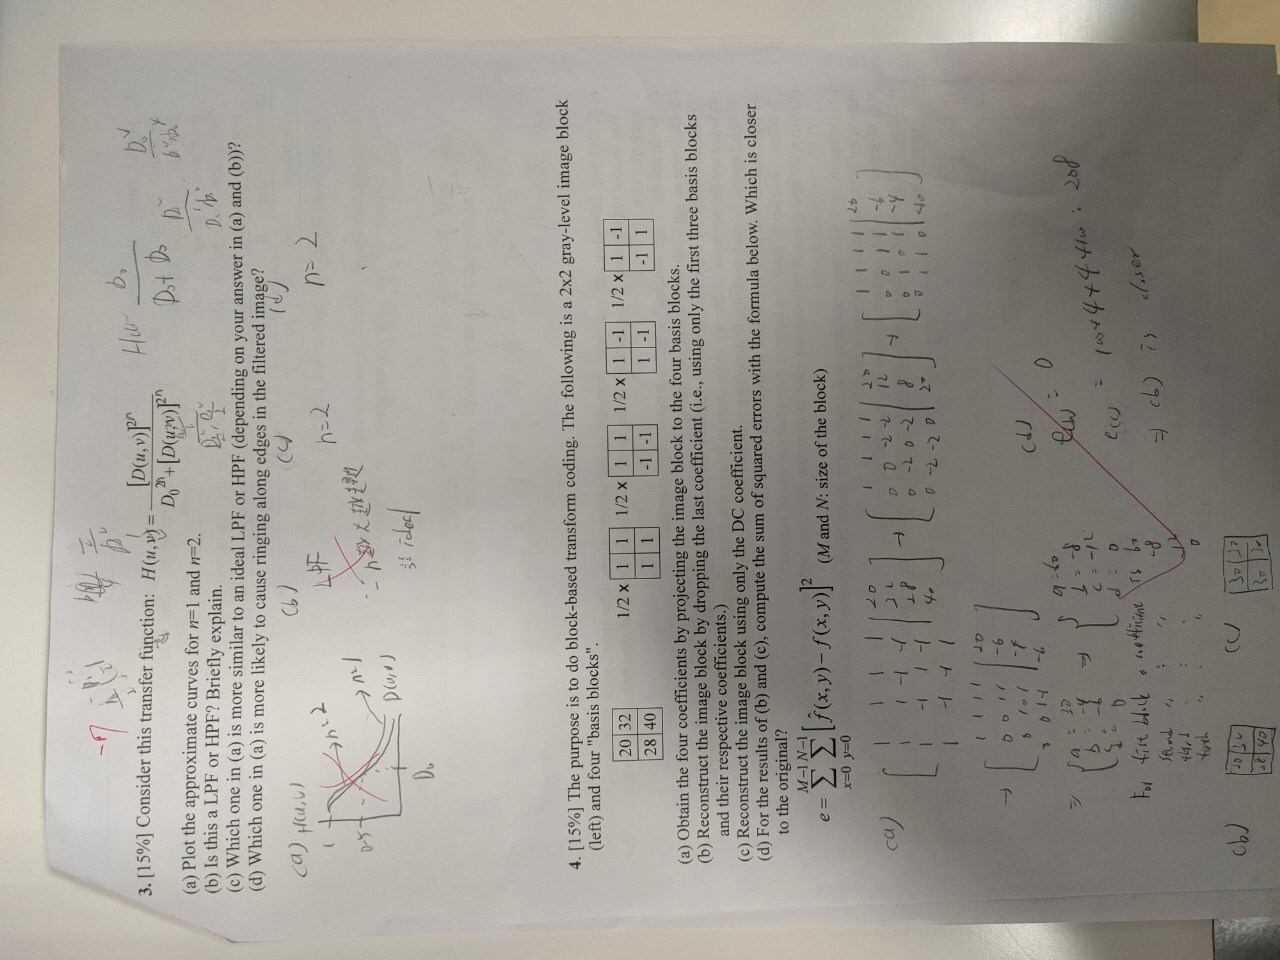 -7
3. [15%] Consider this transfer function: H(u,v) = [D(u,v)]^2n / D0^2n + [D(u,v)]^2n
(a) Plot the approximate curves for n=1 and n=2.
(b) Is this a LPF or HPF? Briefly explain.
(c) Which one in (a) is more similar to an ideal LPF or HPF (depending on your answer in (a) and (b))?
(d) Which one in (a) is more likely to cause ringing along edges in the filtered image?
(a) H(u,v)
1
0.5
n=2
n=1
D(u,v)
D0
(b)
LPF
n 越大 越
ideal
(c)
n=2
(d)
n=2
4. [15%] The purpose is to do block-based transform coding. The following is a 2x2 gray-level image block
(left) and four "basis blocks".
20 32
28 40
1/2 x 1 1
1 1
1/2 x 1 1
-1 -1
1/2 x 1 -1
1 -1
1/2 x 1 -1
-1 1
(a) Obtain the four coefficients by projecting the image block to the four basis blocks.
(b) Reconstruct the image block by dropping the last coefficient (i.e., using only the first three basis blocks
and their respective coefficients.)
(c) Reconstruct the image block using only the DC coefficient.
(d) For the results of (b) and (c), compute the sum of squared errors with the formula below. Which is closer
to the original?
e = M-1 Σ x=0 N-1 Σ y=0 [f̂(x,y) − f(x,y)]^2 (M and N: size of the block)
(a)
1 1 1 1 | 20
1 1 -1 -1 | 32
1 -1 1 -1 | 28
1 -1 -1 1 | 40
→
1 1 1 1 | 20
0 0 -2 -2 | 12
0 -2 0 -2 | 8
0 -2 -2 0 | 20
→
1 1 1 1 | 20
0 0 1 1 | -6
0 1 0 1 | -4
0 1 1 0 | -10
→
1 1 1 1 | 20
0 0 1 1 | -6
0 1 0 1 | -4
-6
⇒
a = 30
b = -4
c = -6
d = 0
⇒
a = 60
b = -8
c = -12
d = 0
For first block = coefficient is 60
second " : " -8
third " : " -12
" : " 0
(b)
20 32
28 40
(c)
30 30
30 30
(d)
e(b) = 0
e(c) = 100+4+4+100 = 208
⇒ (b) is closer